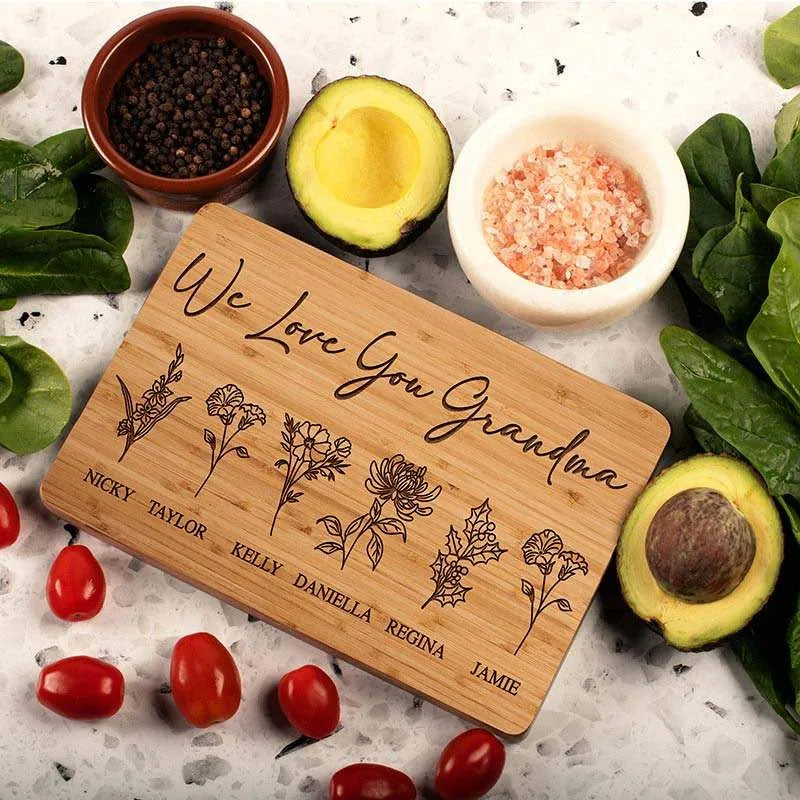 We Love You Grandma
NICKY TAYLOR KELLY DANIELLA REGINA JAMIE